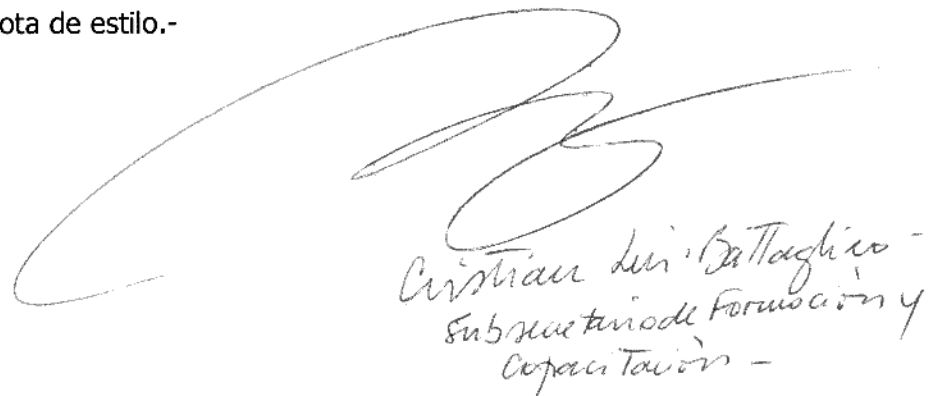 ota de estilo.-
Cristian Luis Battaglino -
Subsecretario de Formación y
Capacitación -